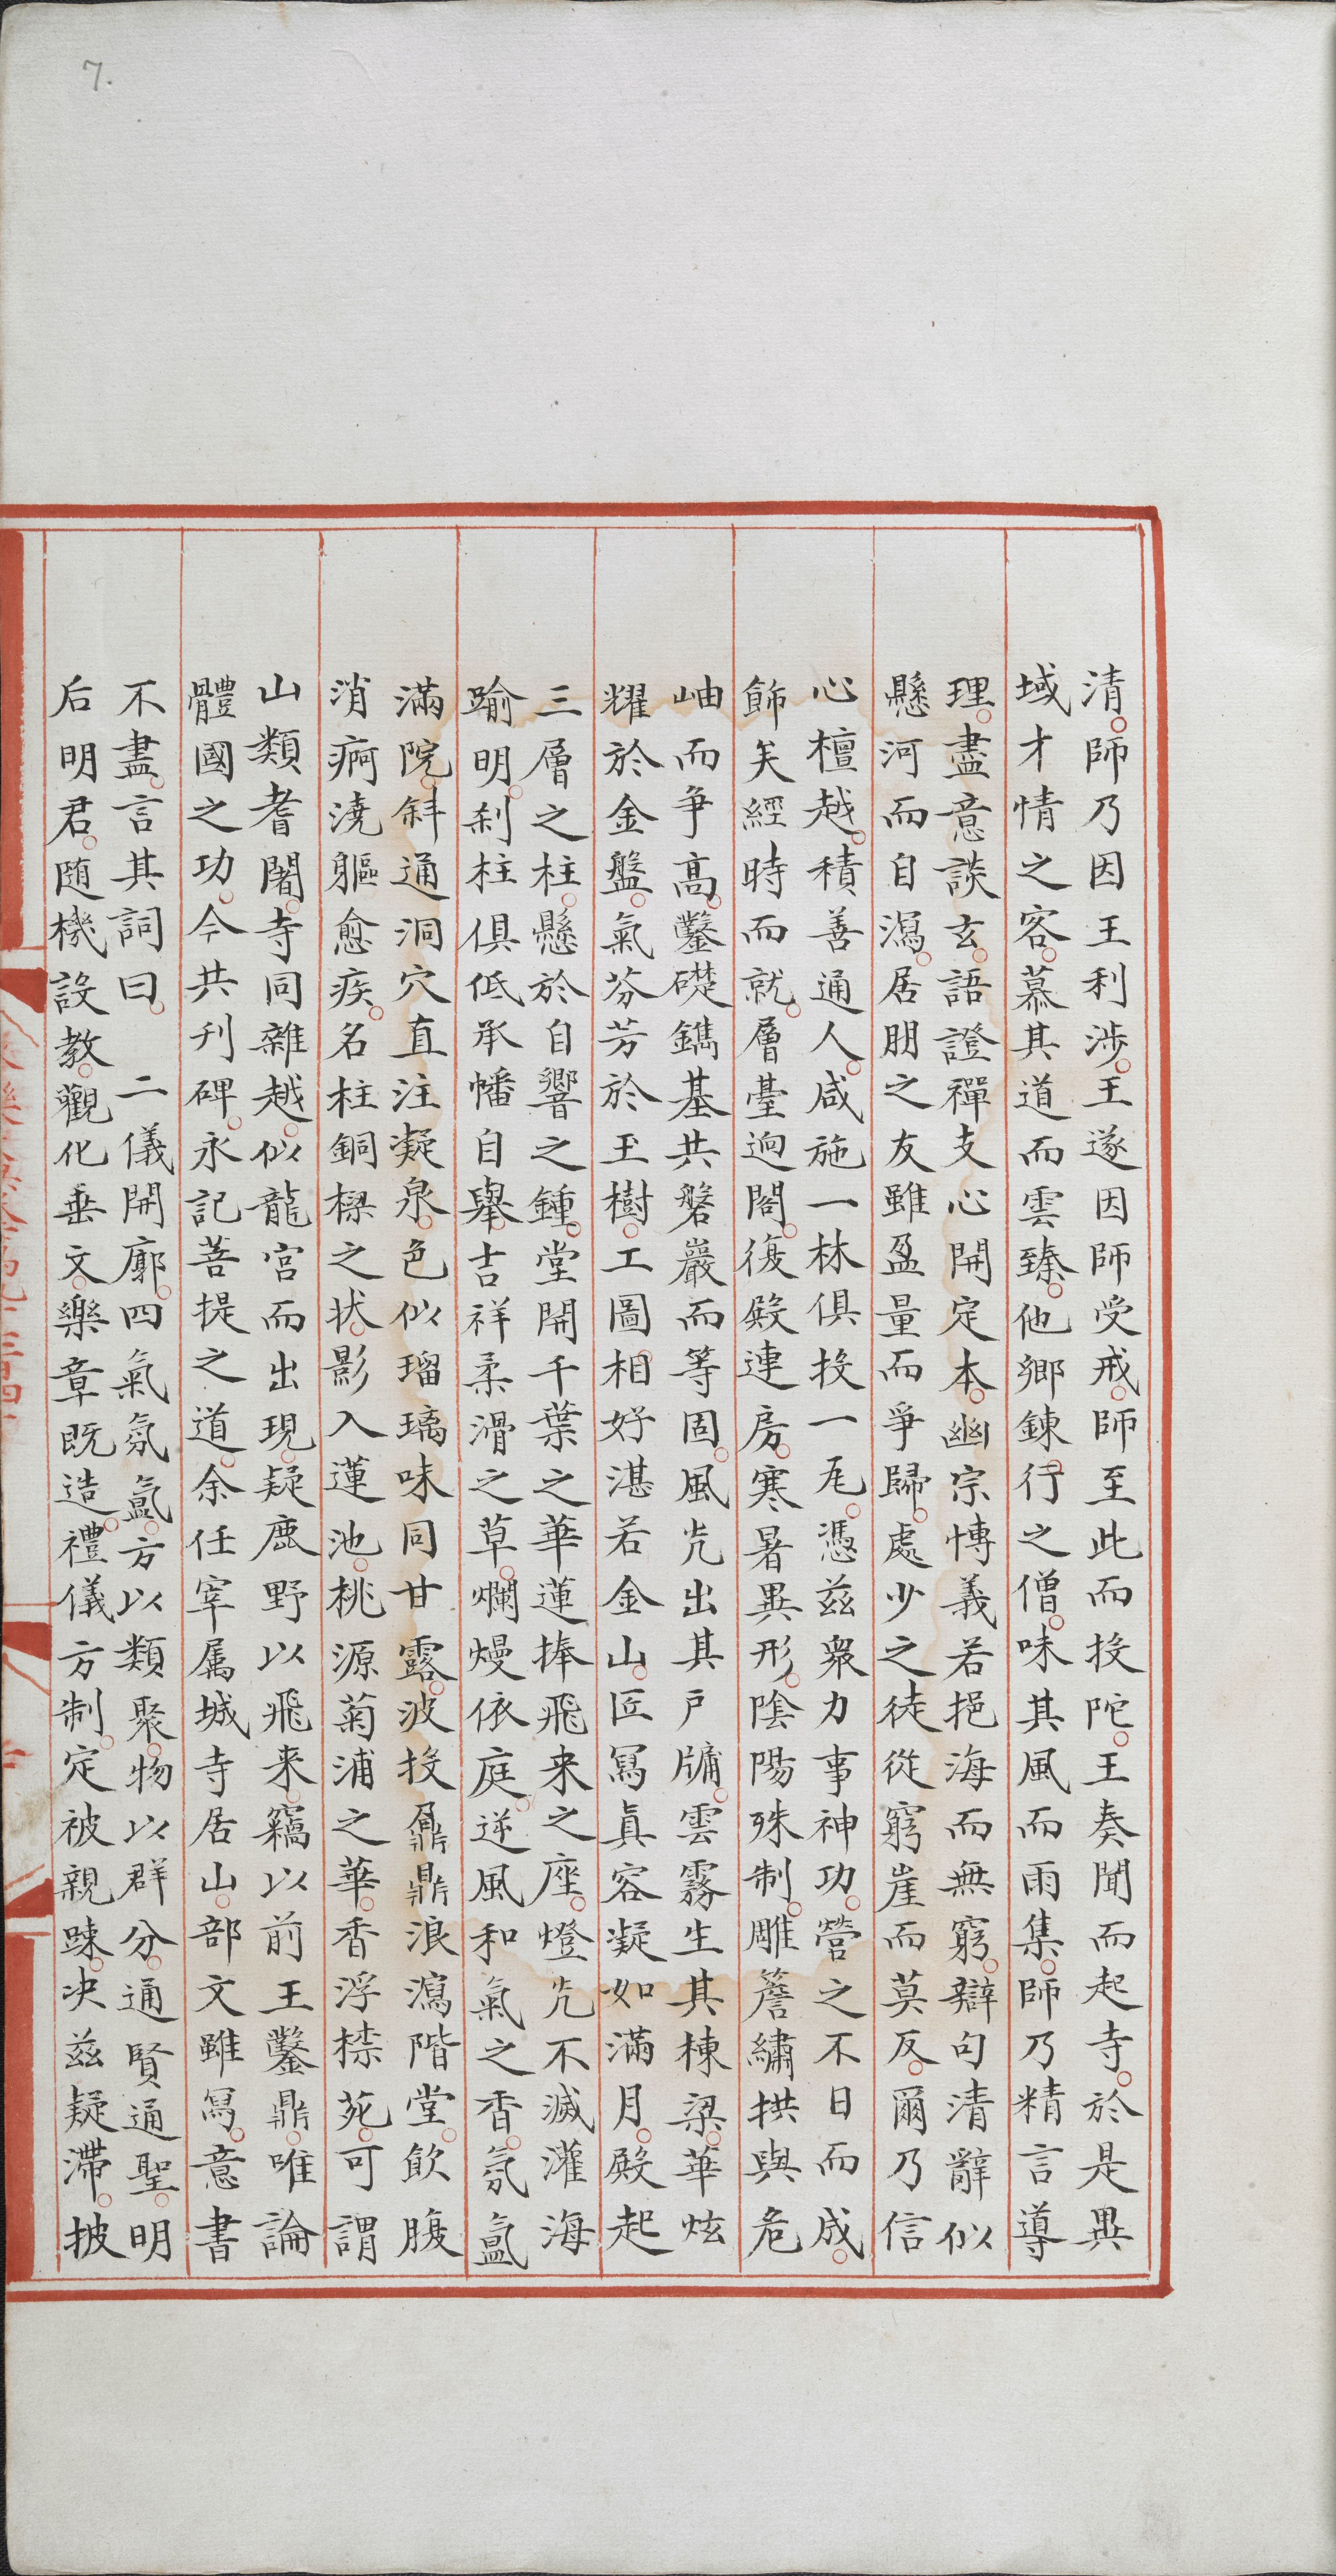 7.
清師乃因王利涉王遂因師受戒師至此而投陀王奏聞而起寺於是異
域才情之客慕其道而雲臻他鄉鍊行之僧味其風而雨集師乃精言導
理盡意談玄語證禪支心開定本幽宗愽義若挹海而無窮辯句清辭似
懸河而自瀉居朋之友雖盈量而爭歸處少之徒從窮崖而莫反爾乃信
心檀越積善通人咸施一林俱投一瓦憑兹衆力事神功營之不日而成
飾矣經時而就層臺逈閣復殿連房寒暑異形陰陽殊制雕簷繡拱與危
岫而爭高鑿礎鐫基共磐巖而等固風光出其戶牖雲霧生其棟梁華炫
耀於金盤氣芬芳於玉樹工圖相好湛若金山匠冩真容凝如滿月殿起
三層之柱懸於自響之鍾堂開千葉之華蓮捧飛来之座燈光不滅灌海
踰明刹柱俱低承幡自舉吉祥柔滑之草爛熳依庭逆風和氣之香氛氳
滿院斜通洞穴直注凝泉色似瑠璃味同甘露波投鼎浪瀉階堂飲腹
消痾澆軀愈疾名柱銅樑之狀影入蓮池桃源菊浦之華香浮㮈苑可謂
山類耆闍寺同雜越似龍宮而出現疑鹿野以飛来竊以前王鑿鼎唯論
體國之功今共刊碑永記菩提之道余任宰属城寺居山部文雖冩意書
不盡言其詞曰　二儀開廓四氣氛氳方以類聚物以群分通賢通聖明
后明君隨機設教觀化垂文樂章既造禮儀方制定被親踈决兹疑滯披